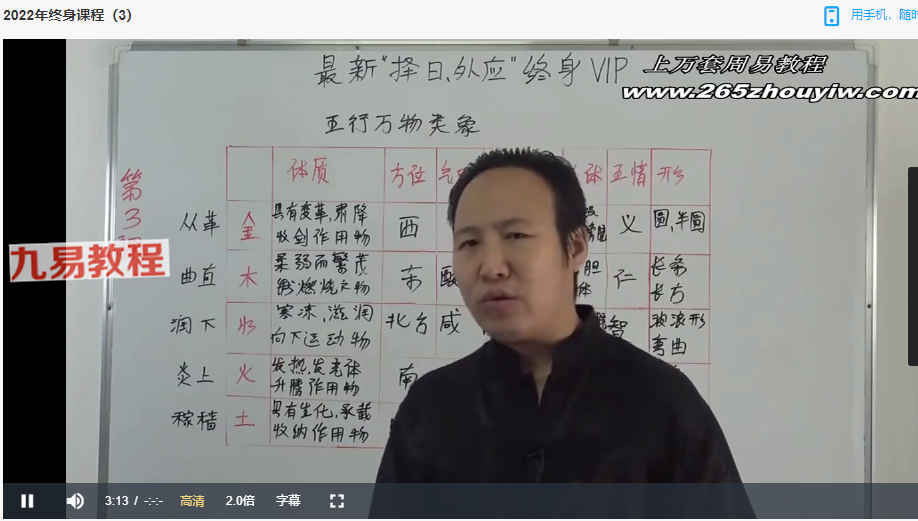 2022年终身课程（3）
用手机、随时
最新"择日、外应"终身VIP
上万套周易教程
www.265zhouyiw.com
五行万物类象
第3
体质 方位 气 体 五情 形
从革 金 具有变革,肃降 西 义 圆,半圆
收剑作用物
九易教程
曲直 木 柔弱而繁茂 东 酸 胆 仁 长条
燃烧之物 长方
润下 水 寒凉,滋润 北 咸 智 波浪形
向下运动物 弯曲
炎上 火 发热,发光体 南
升腾作用物
稼穑 土 具有生化,承载
收纳作用物
3:13 / -:-:- 高清 2.0倍 字幕